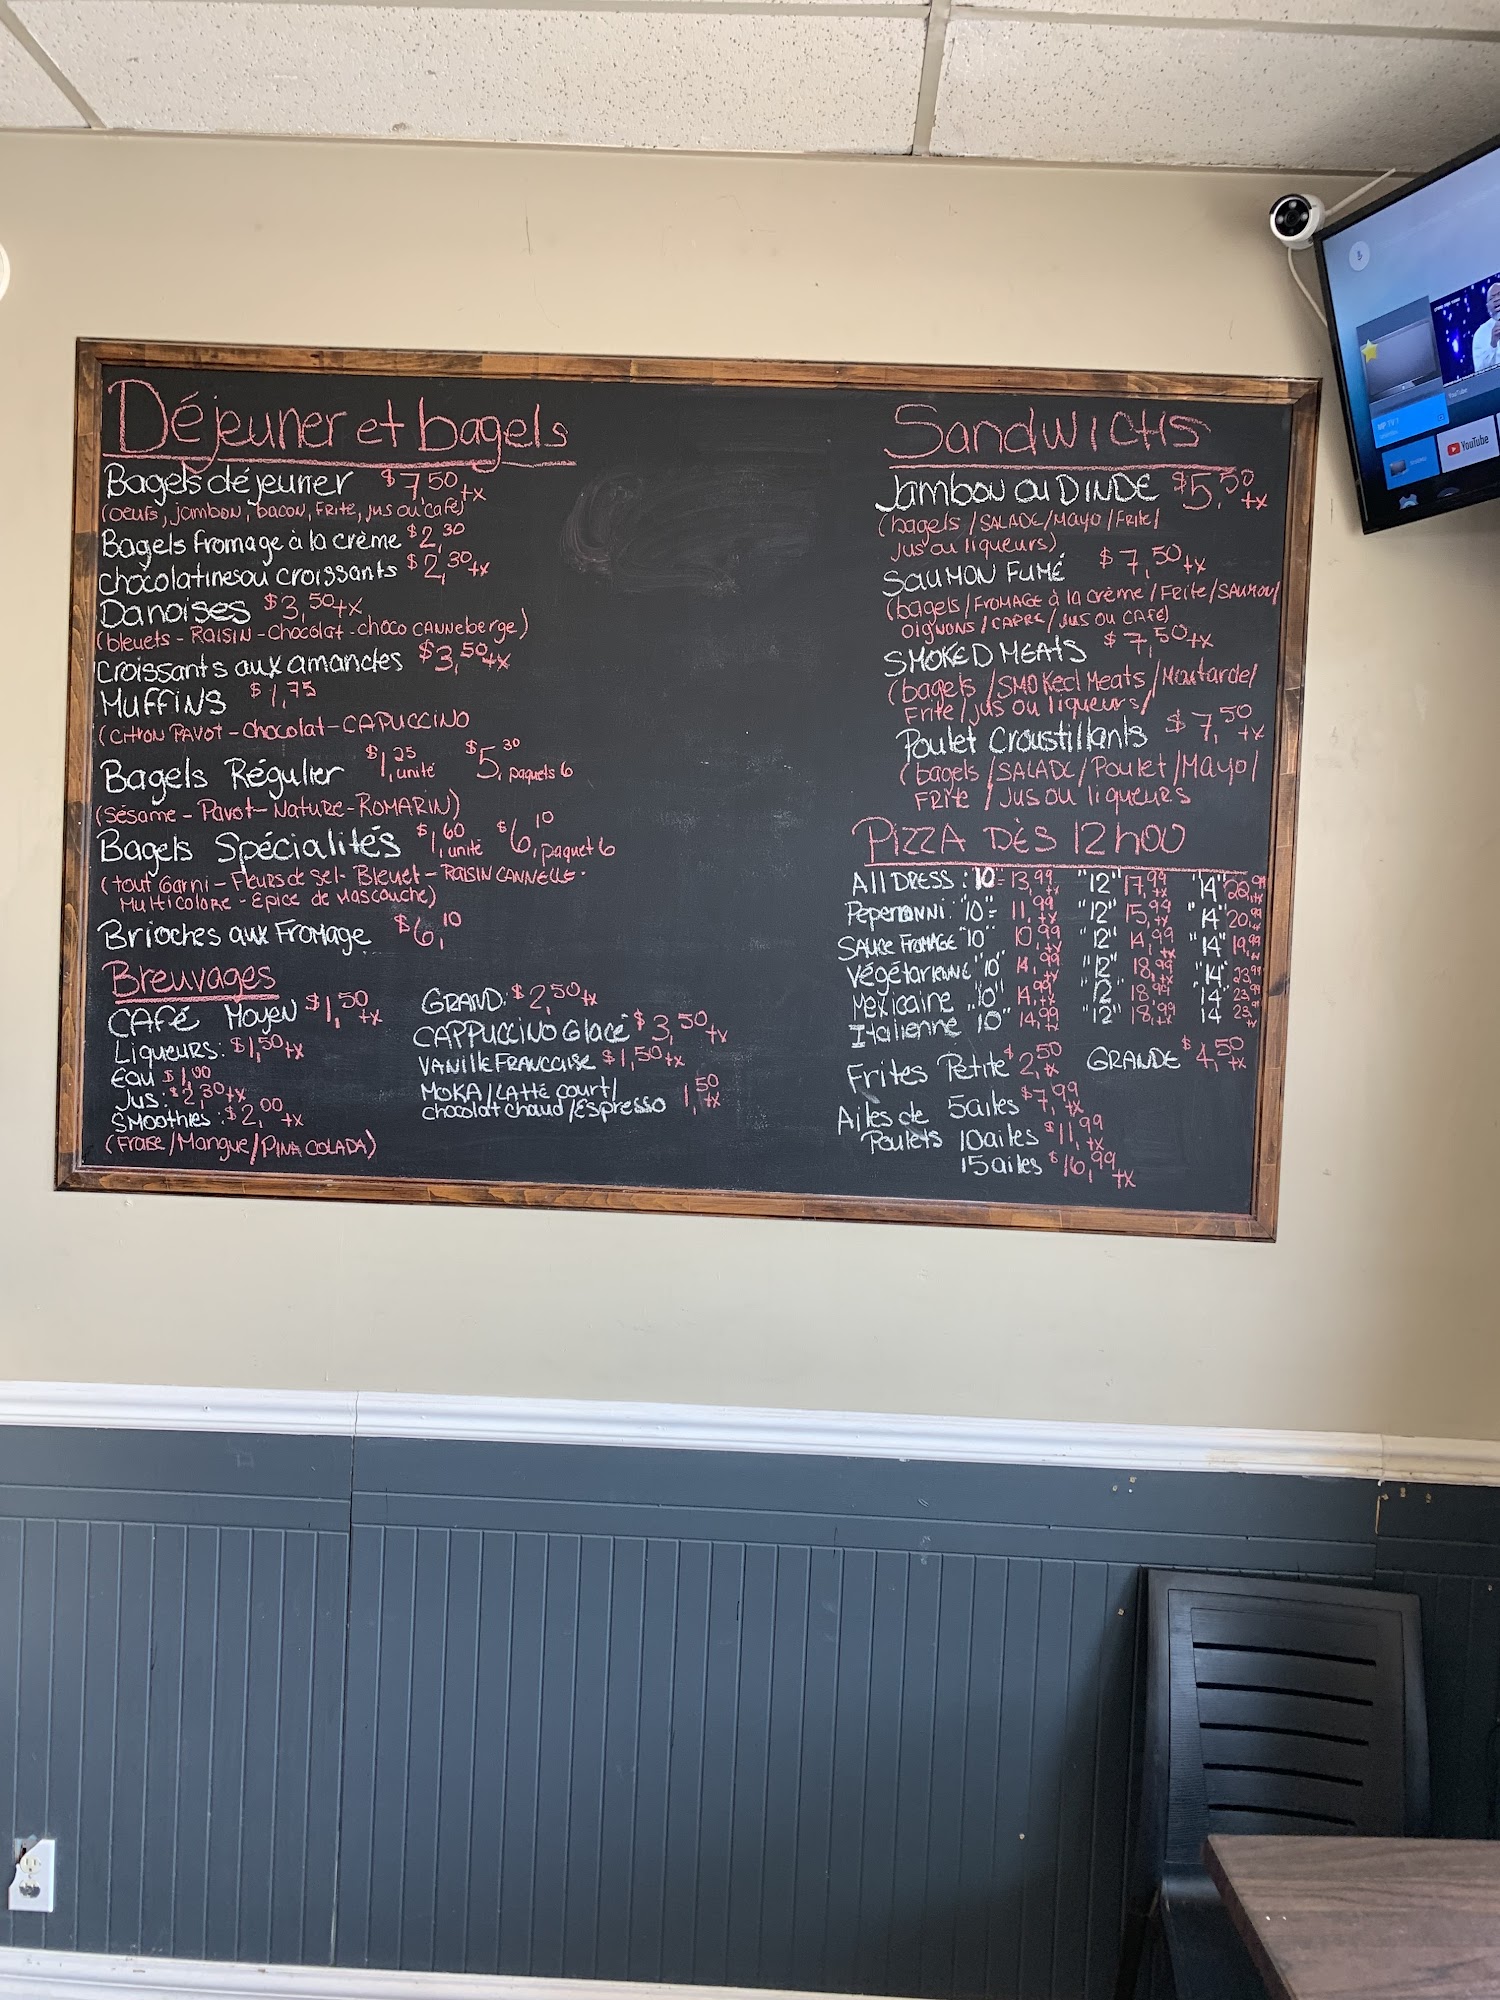 Déjeuner et bagels
Bagels déjeuner $7,50 +tx
(oeufs, jambon, bacon, Frite, jus ou café)
Bagels fromage à la crème $2,30
chocolatines ou croissants $2,30 +tx
Danoises $3,50 +tx
(bleuets - RAISIN - chocolat - choco CANNEberge)
Croissants aux amandes $3,50 +tx
MUFFINS $1,75
(CITRON PAVOT - chocolat - CAPUCCINO
Bagels Régulier $1,25 unité $5,30 paquets 6
(Sésame - Pavot - Nature - ROMARIN)
Bagels Spécialités $1,60 unité $6,10 paquet 6
(tout Garni - Fleurs de sel - Bleuet - RAISIN CANNELLE -
Multicolore - Epice de Mascouche)
Brioches aux Fromage $6,10
Breuvages
CAFÉ Moyen $1,50 +tx GRAND: $2,50 +tx
Liqueurs: $1,50 +tx CAPPUCCINO Glacé $3,50 +tx
Eau $1,00 VANILLE FRANCAISE $1,50 +tx
Jus: $2,30 +tx MOKA/LATTÉ court/
SMOOTHIES: $2,00 +tx chocolat chaud/Espresso 1,50 +tx
(Fraise/Mangue/PINA COLADA)
SandwicHs
Jambon ou DINDE $5,50 +tx
(bagels/SALADE/Mayo/Frite/
jus ou liqueurs)
SAUMON FUMÉ $7,50 +tx
(bagels/FROMAGE à la crème/Frite/SAUMON/
OIGNONS/CAPRE/JUS OU CAFÉ)
SMOKED MEATS $7,50 +tx
(bagels/SMOKed Meats/Moutarde/
Frite/jus ou liqueurs/
Poulet Croustillants $7,50 +tx
(bagels/SALADE/Poulet/Mayo/
FRite/Jus ou liqueurs
PIZZA DÈS 12h00
All DRESS: "10"= 13,99 +tx "12" 17,99 +tx "14"
Peperonni: "10"= 11,99 +tx "12" 15,99 +tx "14" 20,99 +tx
SAUCE FROMAGE "10" 10,99 +tx "12" 14,99 +tx "14" 19,99
Végétarienne "10" 14,99 +tx "12" 18,99 +tx "14" 23,99
Mexicaine "10" 14,99 +tx "12" 18,99 +tx "14 23,99
Italienne "10" 14,99 +tx "12" 18,99 +tx 14 23,99 +tx
Frites Petite $2,50 +tx GRANDE $4,50 +tx
Ailes de 5 ailes $7,99 +tx
Poulets 10 ailes $11,99 +tx
15 ailes $16,99 +tx
YouTube
YouTube